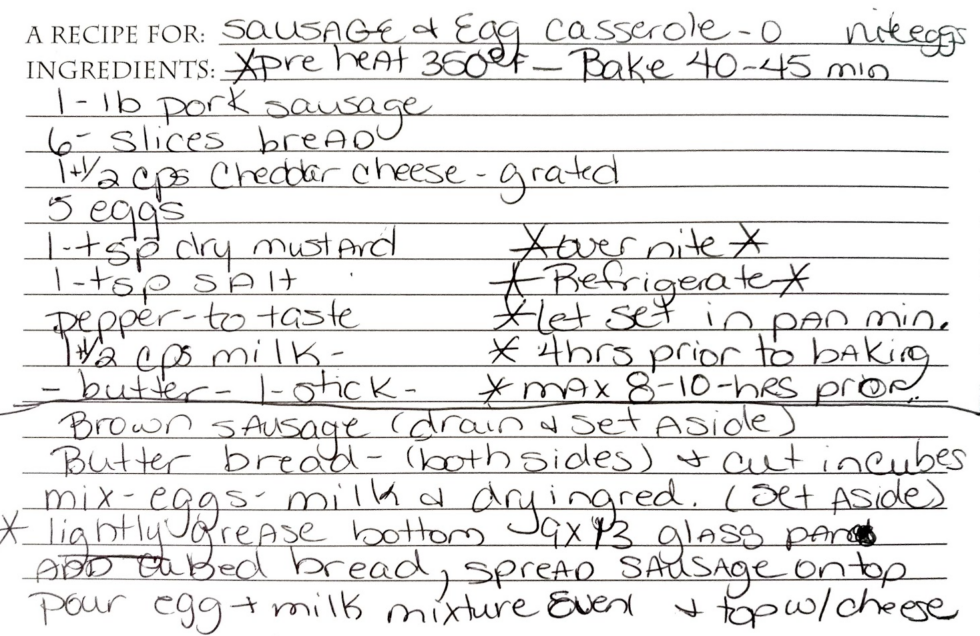 A RECIPE FOR: SAUSAGE & Egg casserole - O niteeggs
INGREDIENTS: *pre heAt 350°f - Bake 40-45 min
1-lb pork sausage
6- slices breAD
1+1/2 cps Cheddar cheese - grated
5 eggs
1-tsp dry mustArd *over nite*
1-tsp sAlt *Refrigerate*
pepper-to taste *let set in pAn min.
1+1/2 cps milk- * 4hrs prior to bAking
- butter - 1-stick- * mAx 8-10-hrs prior.
Brown sAusage (drain & set Aside)
Butter bread - (both sides) + cut in cubes
mix-eggs-milk & dry ingred. (set Aside)
* lightly greAse bottom 9x13 glAss pAn
ADD cubed bread, spreAD sAusAge on top
pour egg + milk mixture Even + top w/ cheese